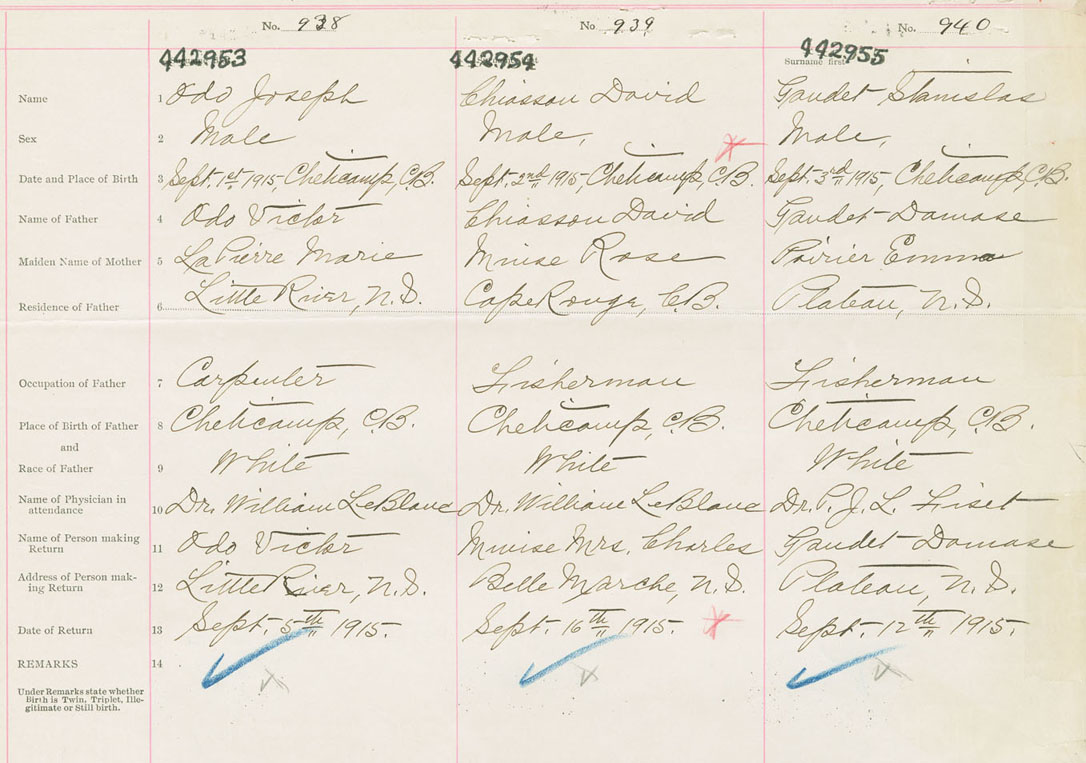 No. 938 No. 939 No. 940
442953 442954 442955
Surname first
Name 1 Odo Joseph Chiasson David Gaudet Stanislas
Sex 2 Male Male, Male,
Date and Place of Birth 3 Sept. 1st 1915, Cheticamp, C.B. Sept. 2nd 1915, Cheticamp, C.B. Sept. 3rd 1915, Cheticamp, C.B.
Name of Father 4 Odo Victor Chiasson David Gaudet Damase
Maiden Name of Mother 5 LaPierre Marie Muise Rose Poirier Emma
Residence of Father 6 Little River, N.S. Cap Rouge, C.B. Plateau, N.S.
Occupation of Father 7 Carpenter Fisherman Fisherman
Place of Birth of Father 8 Cheticamp, C.B. Cheticamp, C.B. Cheticamp, C.B.
and
Race of Father 9 White White White
Name of Physician in
attendance 10 Dr. William LeBlanc Dr. William LeBlanc Dr. P. J. L. Fiset
Name of Person making
Return 11 Odo Victor Muise Mrs. Charles Gaudet Damase
Address of Person mak-
ing Return 12 Little River, N.S. Belle Marche, N.S. Plateau, N.S.
Date of Return 13 Sept. 5th 1915. Sept. 16th 1915. Sept. 12th 1915.
REMARKS 14
Under Remarks state whether
Birth is Twin, Triplet, Ille-
gitimate or Still birth.